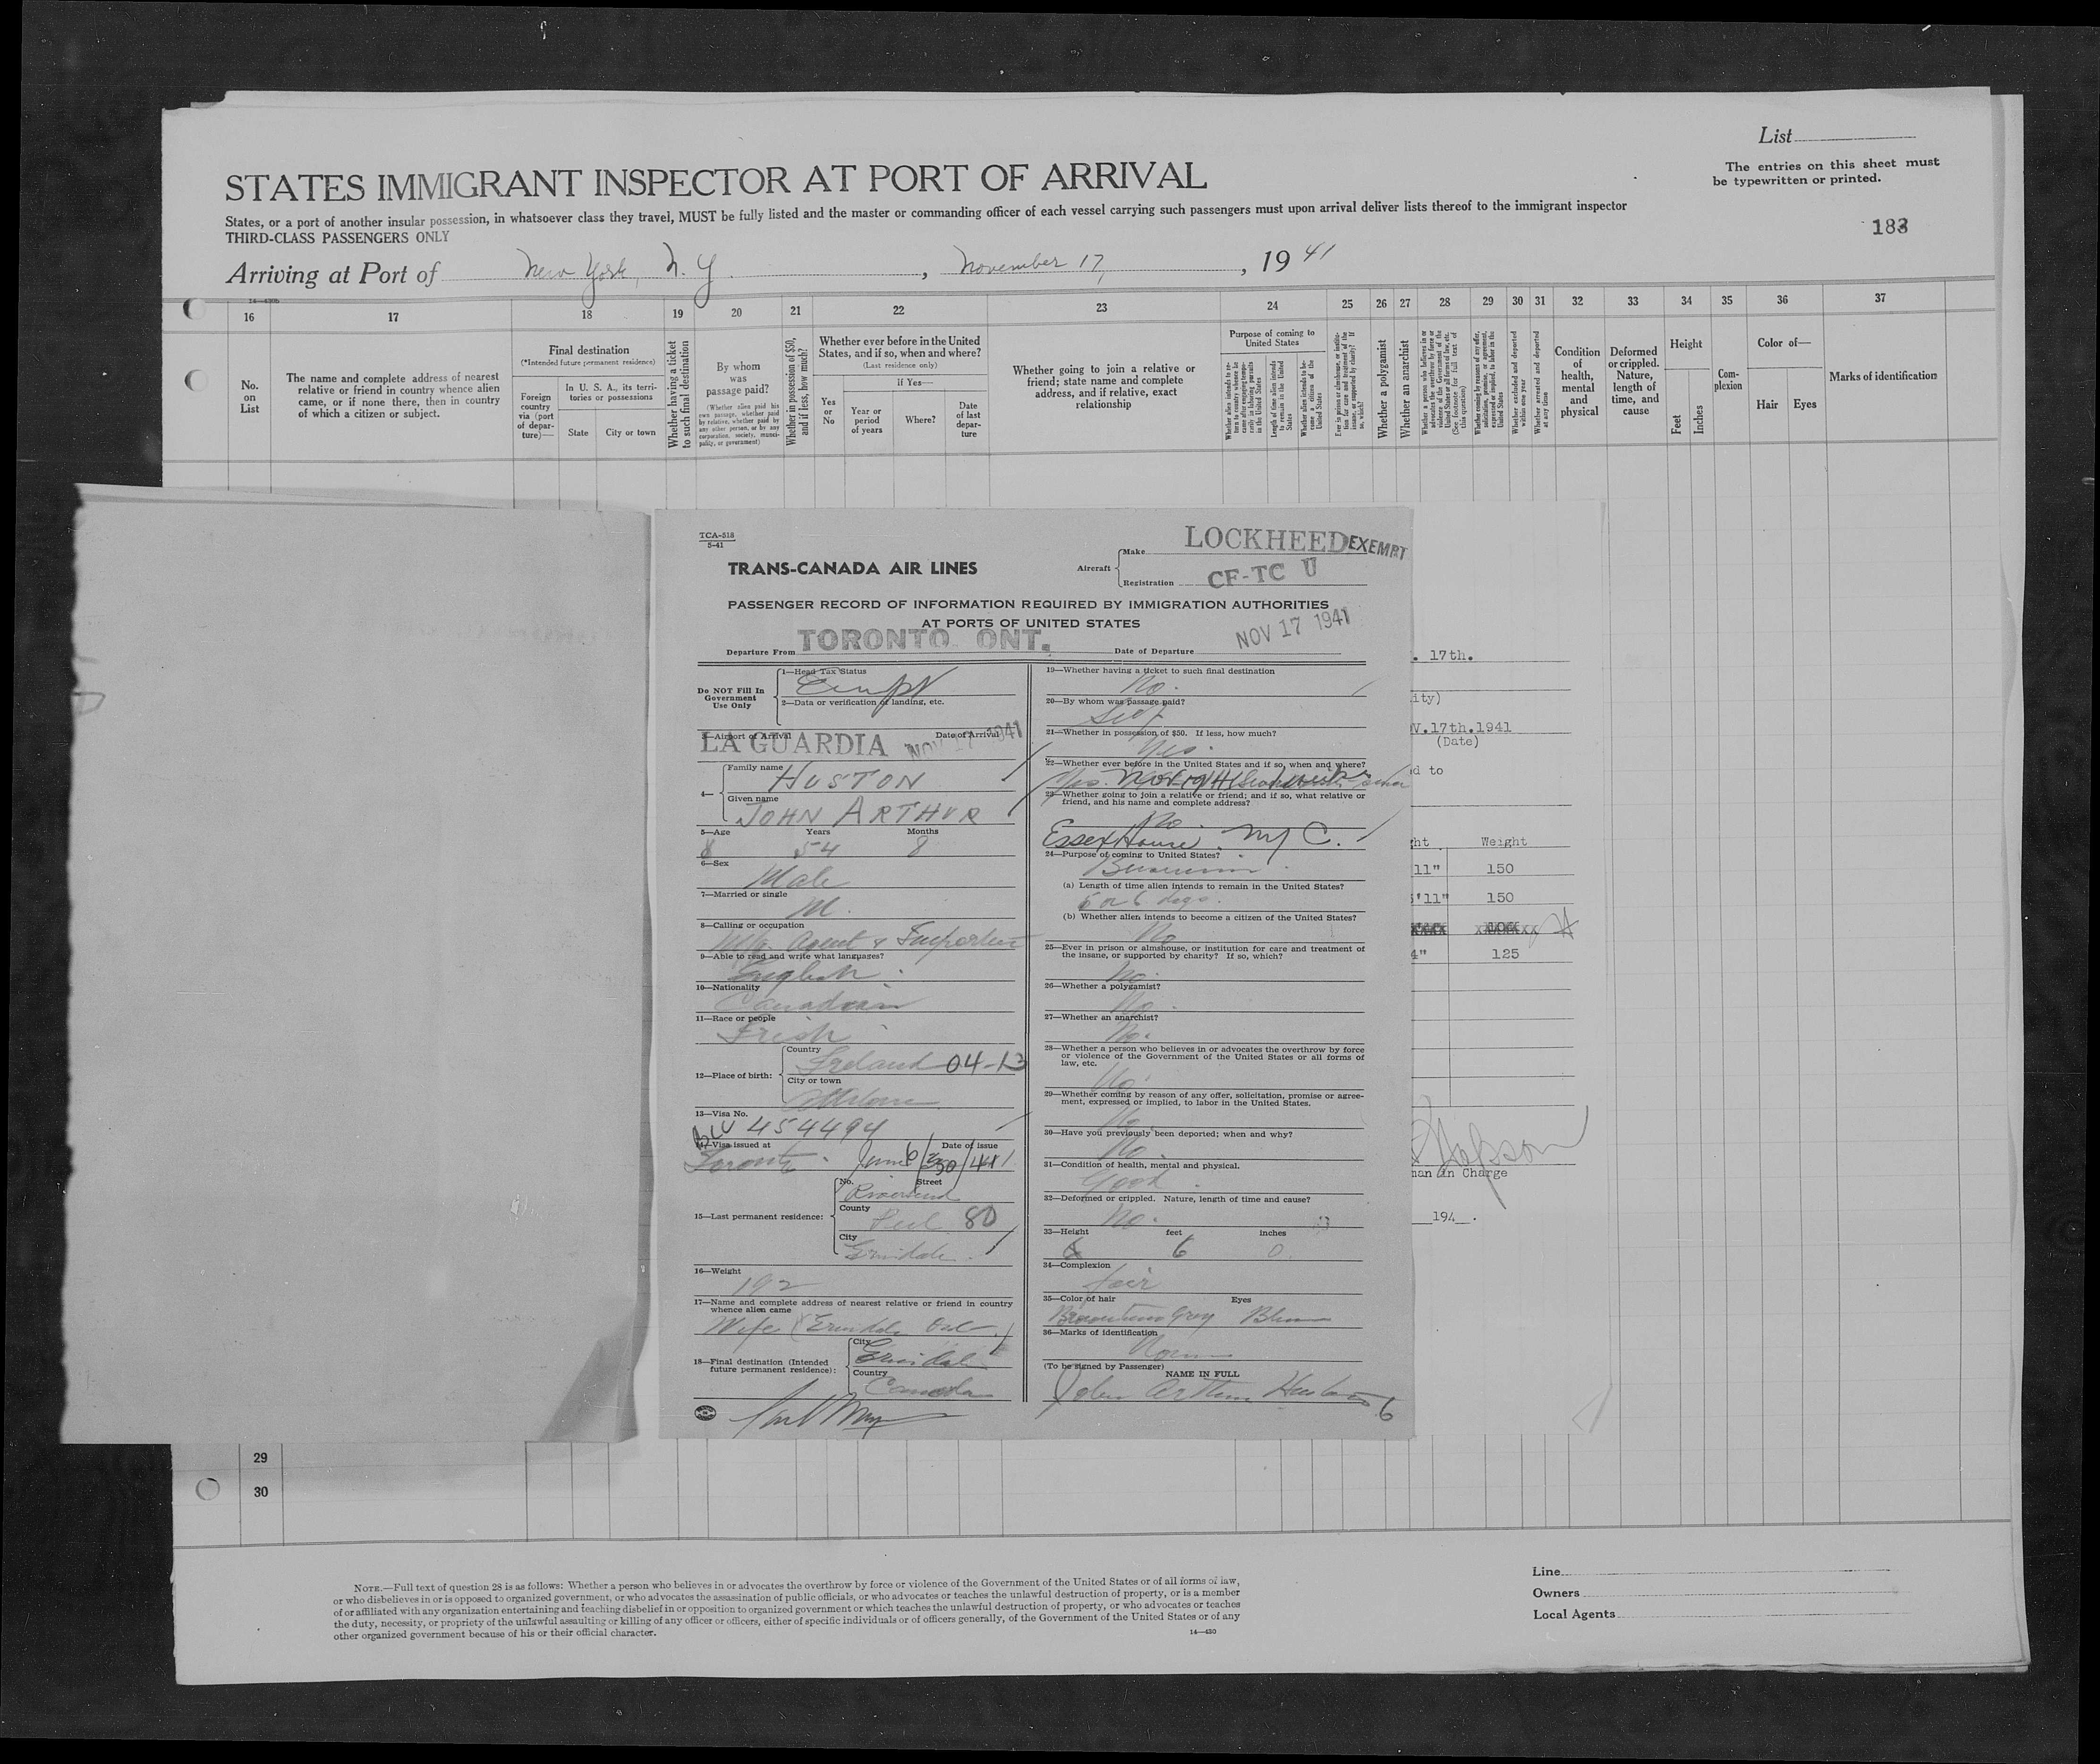 List
The entries on this sheet must
be typewritten or printed.
STATES IMMIGRANT INSPECTOR AT PORT OF ARRIVAL
States, or a port of another insular possession, in whatsoever class they travel, MUST be fully listed and the master or commanding officer of each vessel carrying such passengers must upon arrival deliver lists thereof to the immigrant inspector
THIRD-CLASS PASSENGERS ONLY
183
Arriving at Port of New York, N. Y. , November 17, , 19 41
14—430b
16 17 18 19 20 21 22 23 24 25 26 27 28 29 30 31 32 33 34 35 36 37
No. on List
The name and complete address of nearest relative or friend in country whence alien came, or if none there, then in country of which a citizen or subject.
Final destination
(*Intended future permanent residence)
Foreign country via (port of departure)—
In U. S. A., its territories or possessions
State
City or town
Whether having a ticket to such final destination
By whom was passage paid?
(Whether alien paid his own passage, whether paid by relative, whether paid by any other person, or by any corporation, society, municipality, or government)
Whether in possession of $50, and if less, how much?
Whether ever before in the United States, and if so, when and where?
(Last residence only)
Yes or No
If Yes—
Year or period of years
Where?
Date of last departure
Whether going to join a relative or friend; state name and complete address, and if relative, exact relationship
Purpose of coming to United States
Length of time alien intends to remain in the United States
Whether alien intends to become a citizen of the United States
Whether a polygamist
Whether an anarchist
Whether excluded and deported within one year
Whether arrested and deported at any time
Condition of health, mental and physical
Deformed or crippled. Nature, length of time, and cause
Height
Feet
Inches
Complexion
Color of—
Hair
Eyes
Marks of identification
TCA-518
5-41
TRANS-CANADA AIR LINES
Aircraft
Make LOCKHEED EXEMPT
Registration CF-TC U
PASSENGER RECORD OF INFORMATION REQUIRED BY IMMIGRATION AUTHORITIES
AT PORTS OF UNITED STATES
Departure From TORONTO. ONT. Date of Departure NOV 17 1941
Do NOT Fill In
Government
Use Only
1—Head Tax Status
2—Data or verification of landing, etc.
3—Airport of Arrival Date of Arrival
LA GUARDIA NOV 17 1941
4—
Family name HUSTON
Given name JOHN ARTHUR
5—Age Years Months
54 8
6—Sex
Male
7—Married or single
M.
8—Calling or occupation
Mfg. Agent & Importer
9—Able to read and write what languages?
English
10—Nationality
Canadian
11—Race or people
Irish
12—Place of birth:
Country
Ireland 04-13
City or town
Athlone
13—Visa No.
454494
14—Visa issued at Date of issue
Toronto June 30/41
15—Last permanent residence:
No. Street
County
Peel 80
City
Erindale
16—Weight
192
17—Name and complete address of nearest relative or friend in country
whence alien came
Wife (Erindale Ont.)
18—Final destination (Intended
future permanent residence):
City
Erindale
Country
Canada
19—Whether having a ticket to such final destination
No.
20—By whom was passage paid?
Self
21—Whether in possession of $50. If less, how much?
Yes.
22—Whether ever before in the United States and if so, when and where?
Yes. Nov. 1941
23—Whether going to join a relative or friend; and if so, what relative or
friend, and his name and complete address?
No.
Essex House, NYC.
24—Purpose of coming to United States?
Business
(a) Length of time alien intends to remain in the United States?
5 or 6 days.
(b) Whether alien intends to become a citizen of the United States?
No
25—Ever in prison or almshouse, or institution for care and treatment of
the insane, or supported by charity? If so, which?
No.
26—Whether a polygamist?
No.
27—Whether an anarchist?
No.
28—Whether a person who believes in or advocates the overthrow by force
or violence of the Government of the United States or all forms of
law, etc.
No.
29—Whether coming by reason of any offer, solicitation, promise or agree-
ment, expressed or implied, to labor in the United States.
No.
30—Have you previously been deported; when and why?
No.
31—Condition of health, mental and physical.
Good.
32—Deformed or crippled. Nature, length of time and cause?
No.
33—Height feet inches
6 0
34—Complexion
fair
35—Color of hair Eyes
Brown turn Gray Blue
36—Marks of identification
None
(To be signed by Passenger)
NAME IN FULL
John Arthur Huston
6
. 17th.
ity)
V.17th.1941
(Date)
d to
ht Weight
11" 150
5'11" 150
4" 125
man in Charge
194 .
29
30
NOTE.—Full text of question 28 is as follows: Whether a person who believes in or advocates the overthrow by force or violence of the Government of the United States or of all forms of law,
or who disbelieves in or is opposed to organized government, or who advocates the assassination of public officials, or who advocates or teaches the unlawful destruction of property, or is a member
of or affiliated with any organization entertaining and teaching disbelief in or opposition to organized government or which teaches the unlawful destruction of property, or who advocates or teaches
the duty, necessity, or propriety of the unlawful assaulting or killing of any officer or officers, either of specific individuals or of officers generally, of the Government of the United States or of any
other organized government because of his or their official character.
14—430
Line
Owners
Local Agents